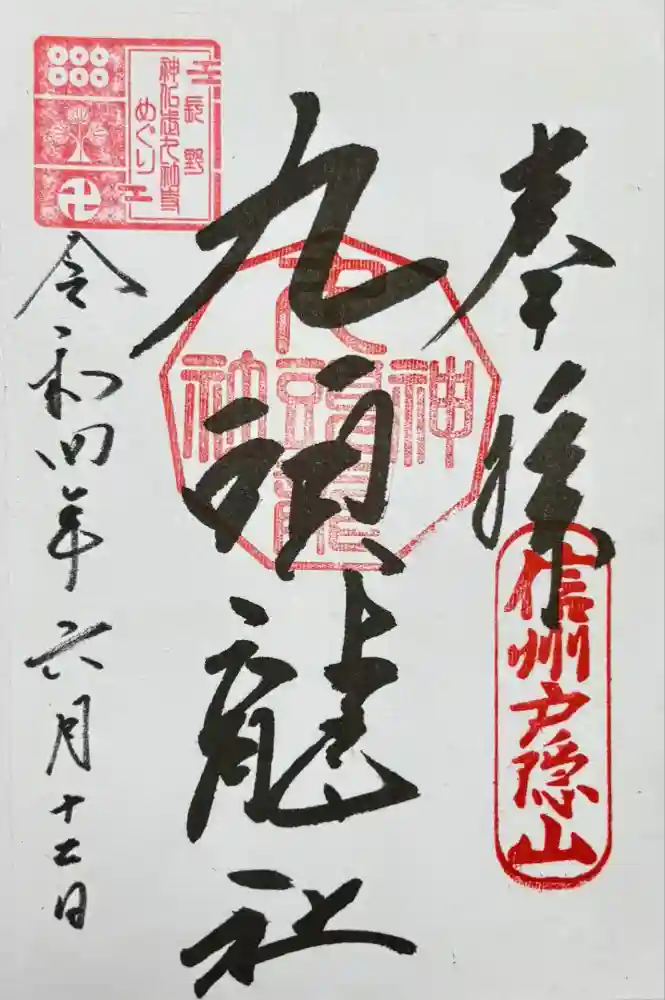 奉拝
信州戸隠山
九頭龍社
九頭龍
神
長野
めぐり
令和四年六月十二日